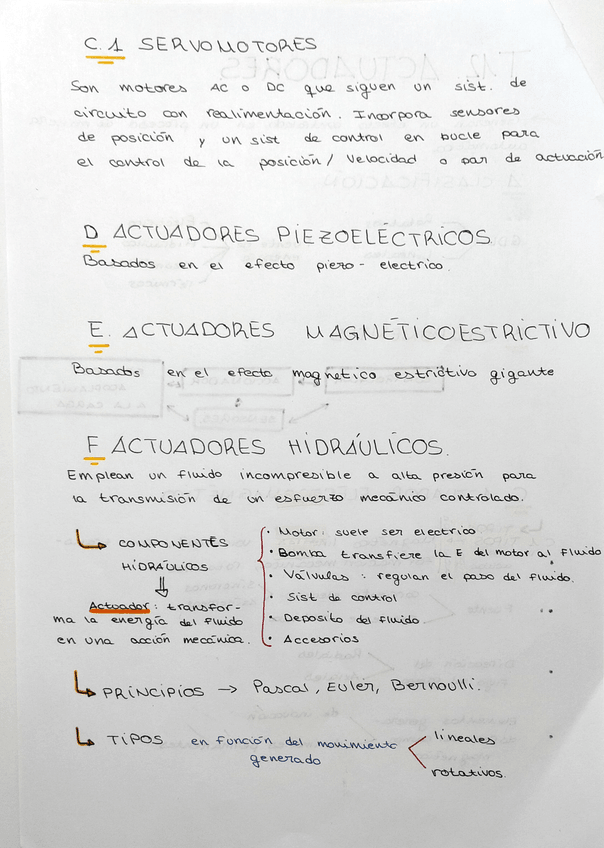 C.1 SERVOMOTORES
Son motores AC o DC que siguen un sist. de
circuito con realimentación. Incorpora sensores
de posición y un sist de control en bucle para
el control de la posición / velocidad o par de actuación
D ACTUADORES PIEZOELÉCTRICOS
Basados en el efecto piezo-electrico.
E. ACTUADORES MAGNÉTICOESTRICTIVO
Basados en el efecto magnetico estrictivo gigante
F ACTUADORES HIDRÁULICOS.
Emplean un fluido incompresible a alta presión para
la transmisión de un esfuerzo mecánico controlado.
↳ COMPONENTES
HIDRÁULICOS
⇓
Actuador: transfor-
ma la energía del fluido
en una acción mecánica.
• Motor: suele ser electrico
• Bomba transfiere la E del motor al fluido
• Válvulas : regulan el paso del fluido.
• Sist de control
• Deposito del fluido.
• Accesorios
↳ PRINCIPIOS → Pascal, Euler, Bernoulli.
↳ TIPOS en función del movimiento
generado
lineales
rotativos.